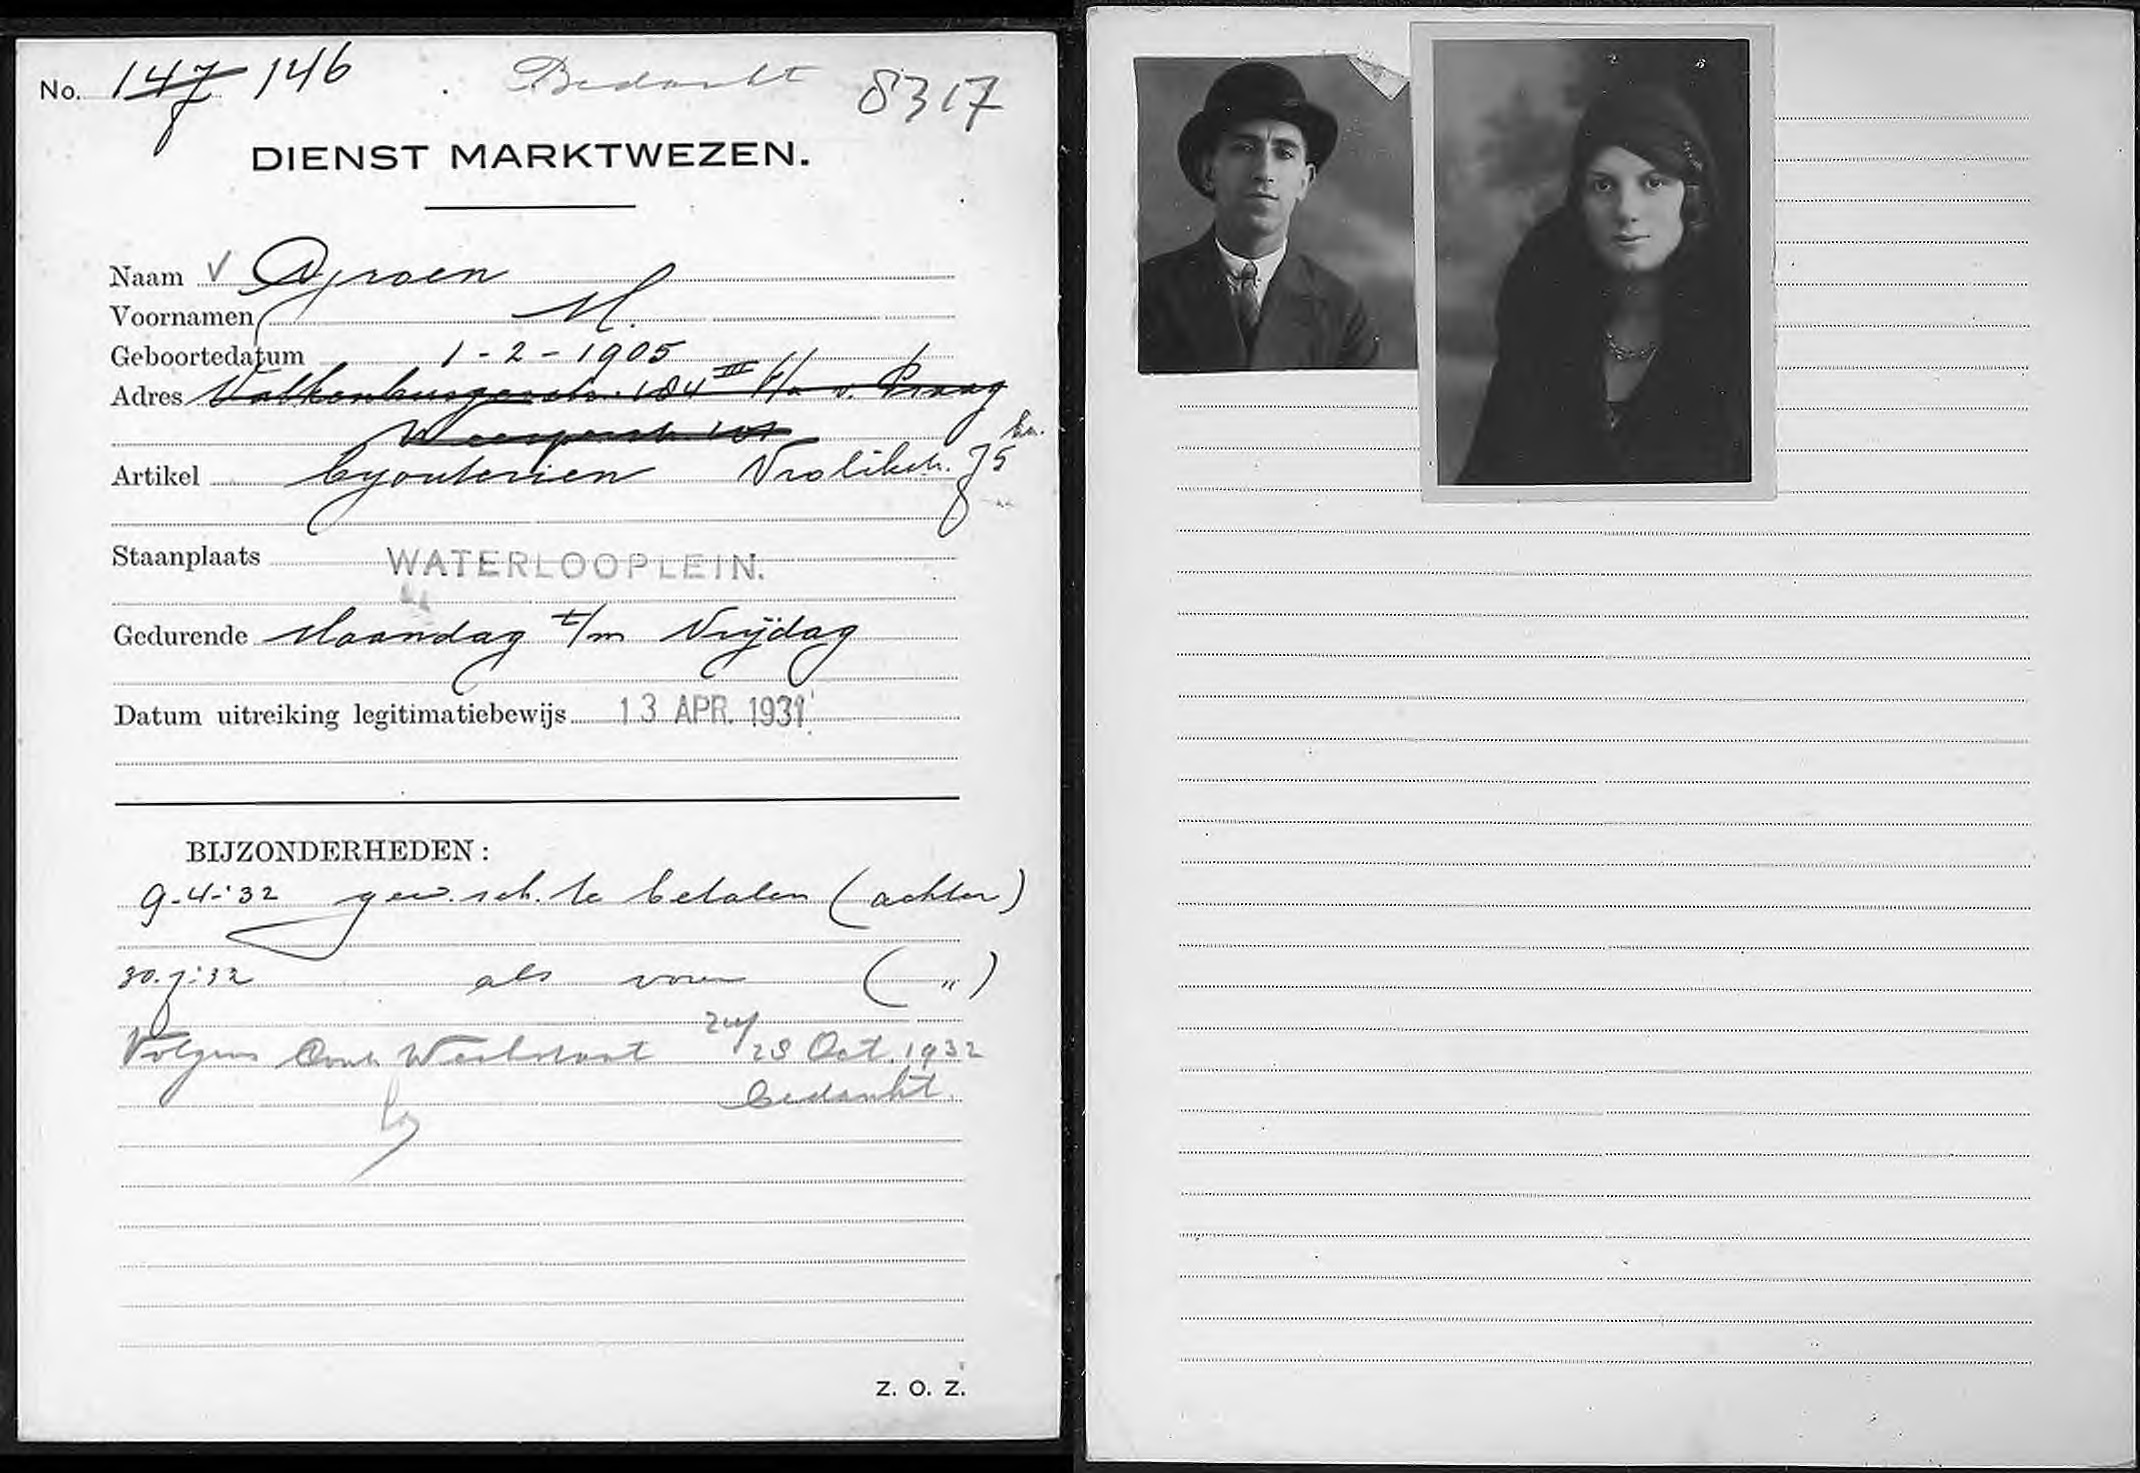 No. 147 146 Bedankt 8317
DIENST MARKTWEZEN.
Naam V Dyroen
Voornamen M.
Geboortedatum 1-2-1905
Adres Valkenburgerstr. 184 III b/a v. Praag
Weesperstr. 101
hs.
Artikel byouterien Vrolikstr. 75
Staanplaats WATERLOOPLEIN.
Gedurende Maandag t/m Vrijdag
Datum uitreiking legitimatiebewijs 13 APR. 1931
BIJZONDERHEDEN:
9-4-'32 gew. sch. te betalen (achter)
30-7-'32 als voren ( " )
Volgens 28 Oct. 1932
bedankt.
Z. O. Z.